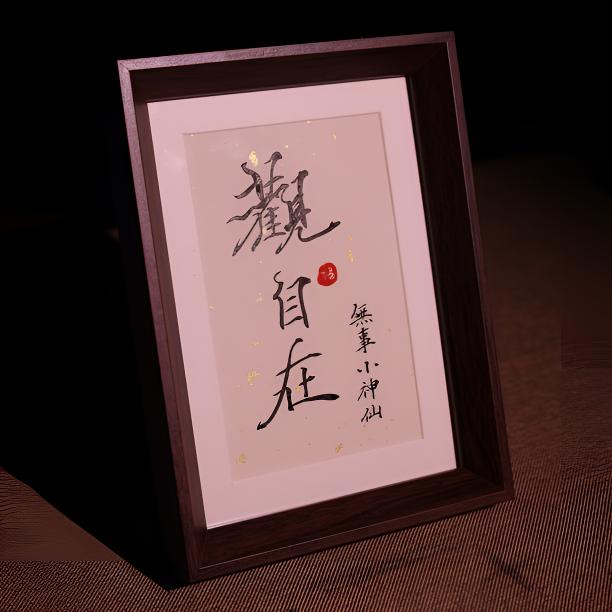 觀自在
無事小神仙